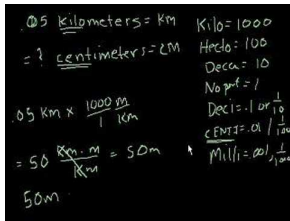 .05 kilometers = km
= ? centimeters = cm
.05 km x 1000 m / 1 km
= 50 km . m / km = 50m
50m
Kilo = 1000
Hecto = 100
Deca = 10
No pref = 1
Deci = .1 or 1/10
CENTI = .01 / 1/100
Milli = .001, 1/1000